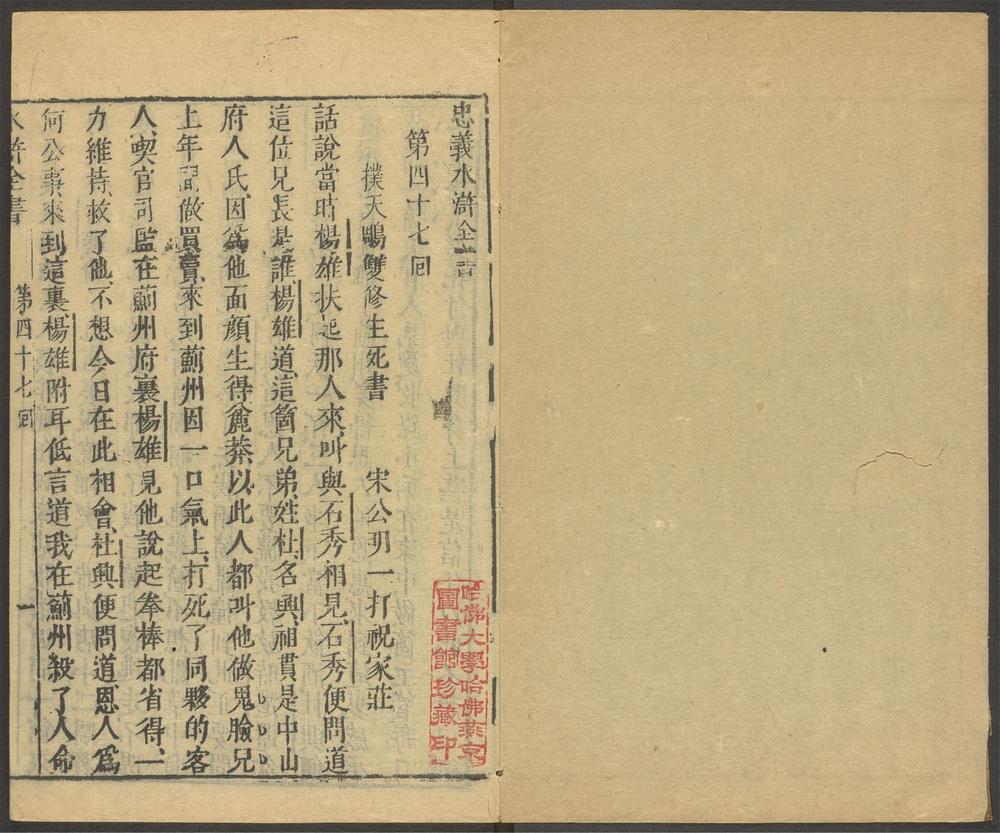 忠義水滸全書
第四十七回
撲天鵰雙修生死書　宋公明一打祝家莊
話說當時楊雄扶起那人來、叫與石秀相見、石秀便問道
這位兄長是誰、楊雄道、這箇兄弟、姓杜、名興、祖貫是中山
府人氏、因爲他面顏生得麄莽、以此人都叫他做鬼臉兒
上年間做買賣、來到薊州、因一口氣上、打死了同夥的客
人、喫官司監在薊州府裏、楊雄見他說起拳棒都省得、一
力維持、救了他、不想今日在此相會、杜興便問道、恩人爲
何公事、來到這裏、楊雄附耳低言道、我在薊州殺了人命
水滸全書　第四十七回　一
哈佛大學哈佛燕京
圖書館珍藏印